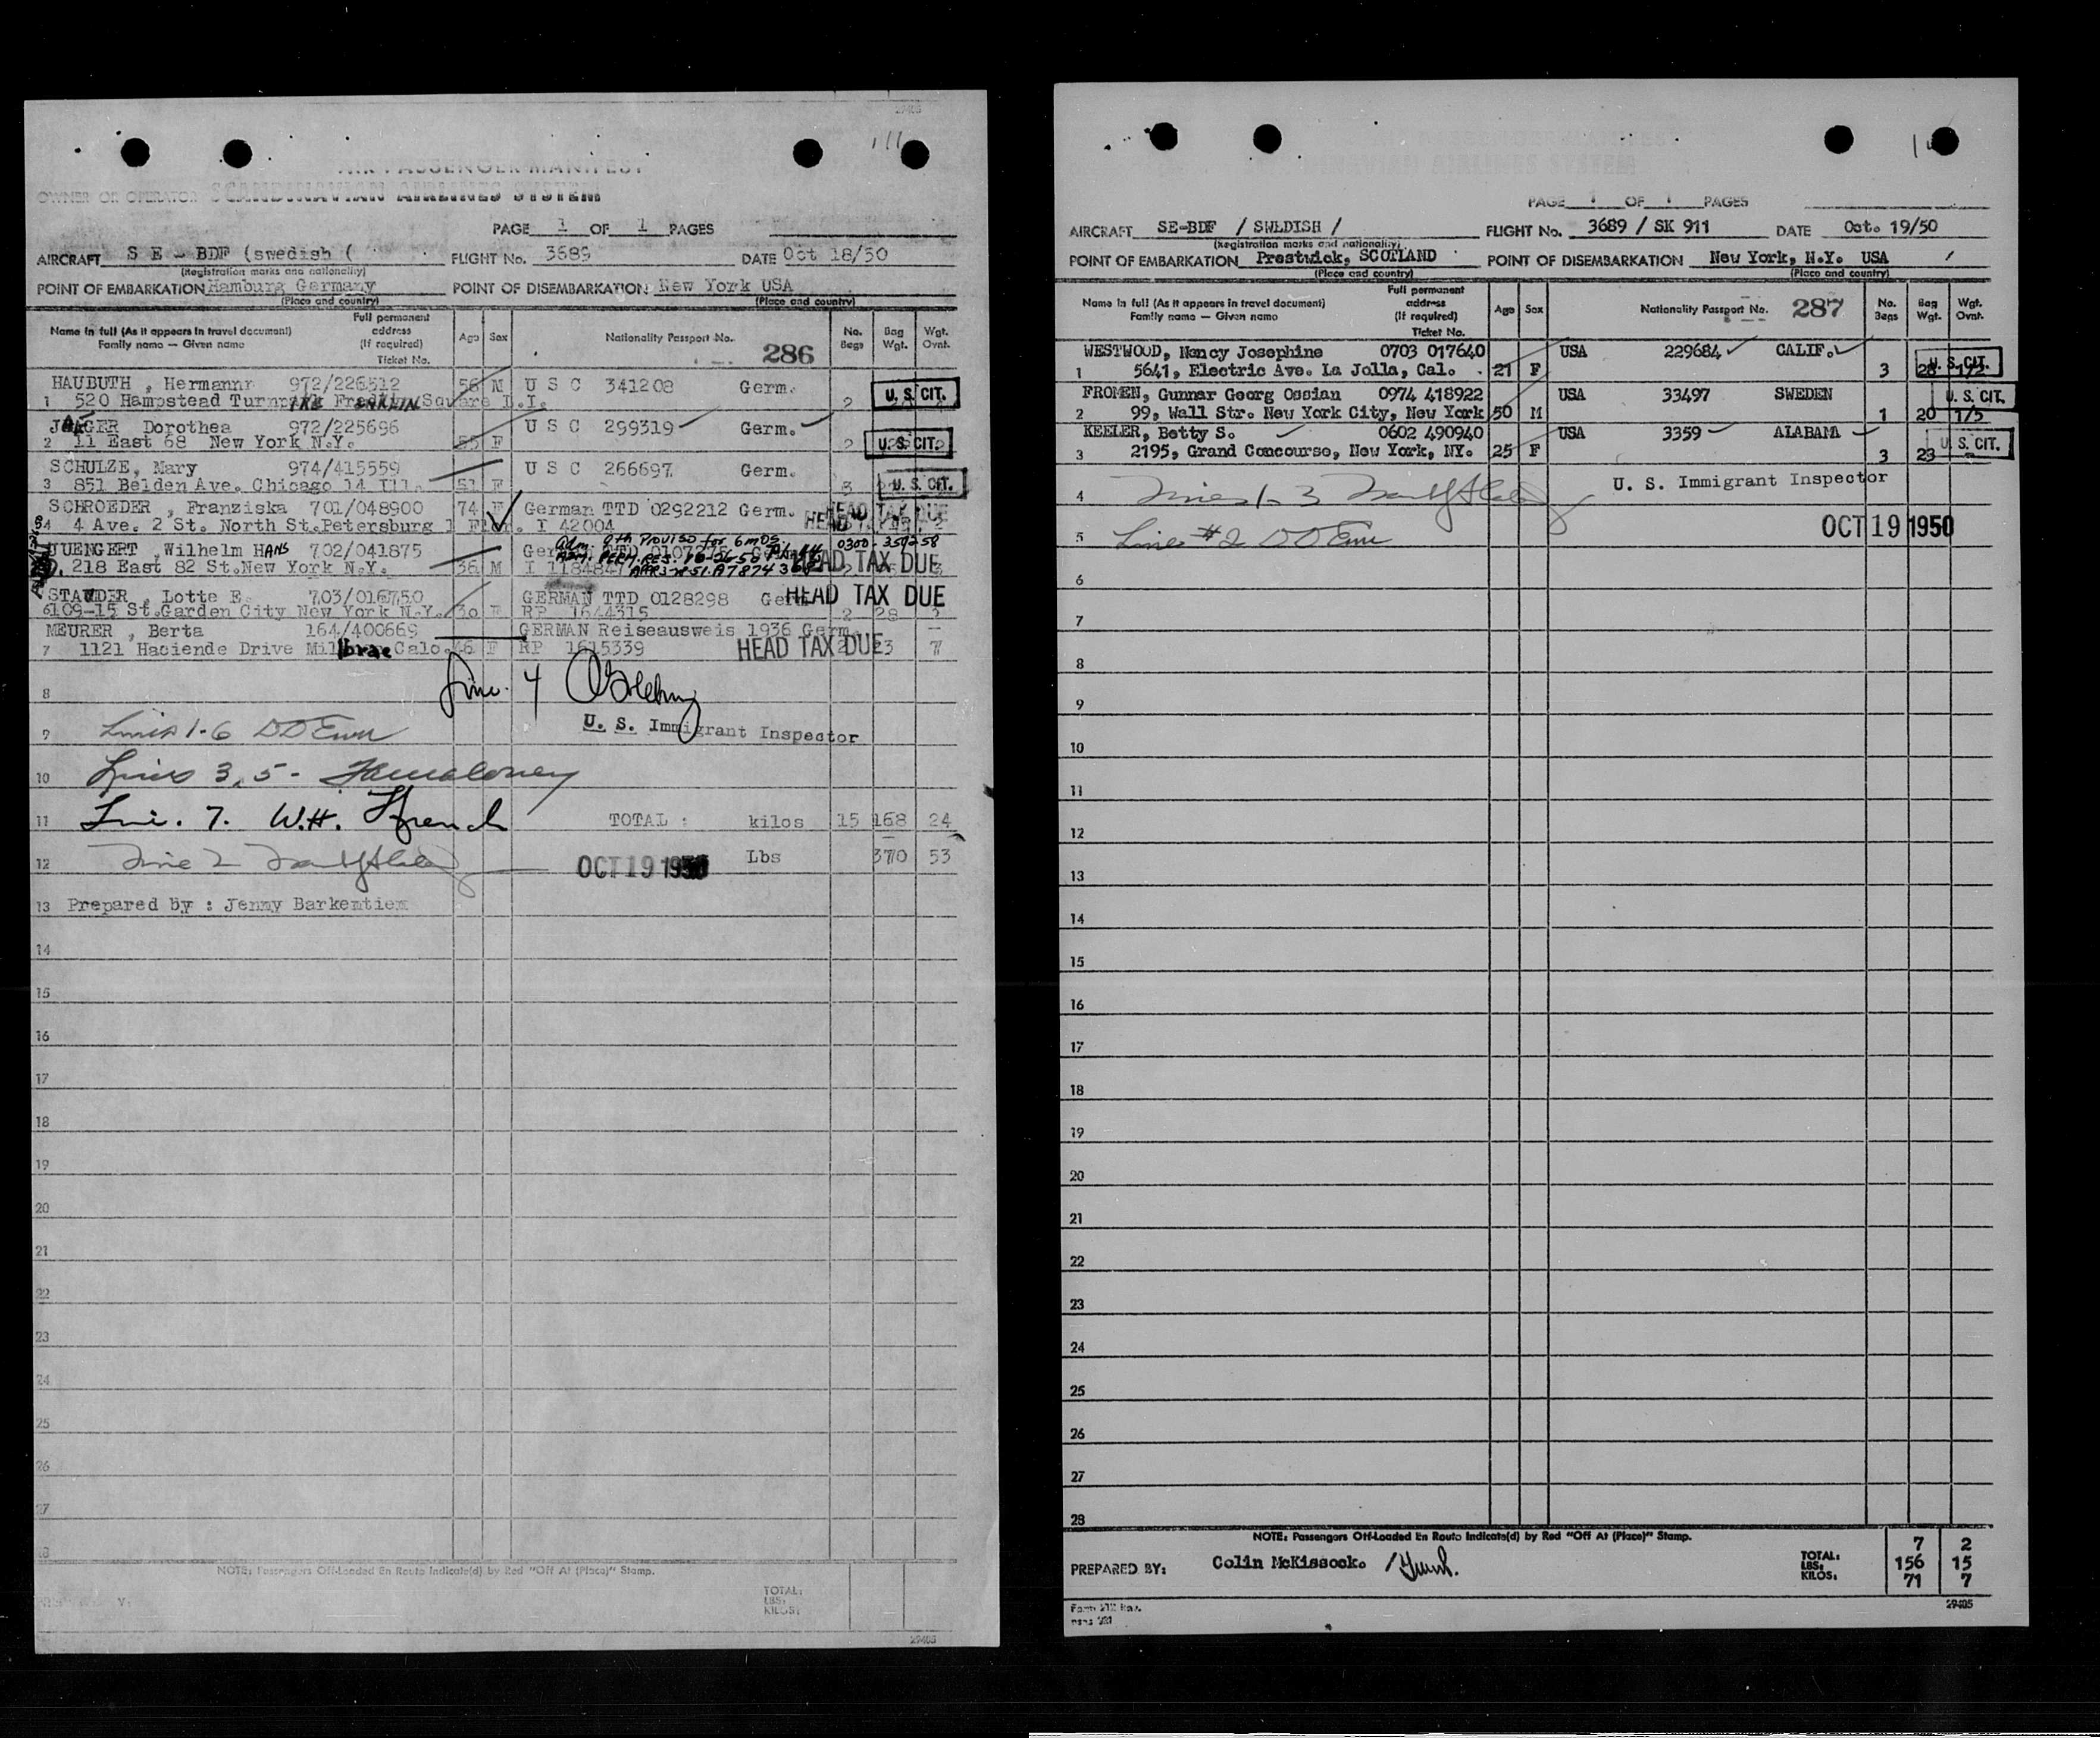 29403
111
AIR PASSENGER MANIFEST
OWNER OR OPERATOR SCANDINAVIAN AIRLINES SYSTEM
PAGE 1 OF 1 PAGES
AIRCRAFT S E - BDF (swedish ( FLIGHT No. 3689 DATE Oct 18/50
(Registration marks and nationality)
POINT OF EMBARKATION Hamburg Germany POINT OF DISEMBARKATION New York USA
(Place and country) (Place and country)
Name in full (As it appears in travel document) Family name — Given name Full permanent address (If required) Ticket No. Age Sex Nationality Passport No. 286 No. Bags Bag Wgt. Wgt. Ovnt.
HAUBUTH , Hermann 972/226512 56 M U S C 341208 Germ. 2 U. S. CIT.
1 520 Hampstead Turnpike Franklin Square L.I.
JAEGER Dorothea 972/225696 55 F U S C 299319 Germ. 2 U. S. CIT.
2 11 East 68 New York N.Y.
SCHULZE, Mary 974/415559 51 F U S C 266697 Germ. 3 U. S. CIT.
3 851 Belden Ave. Chicago 14 Ill.
SCHROEDER , Franziska 701/048900 74 F German TTD 0292212 Germ. HEAD TAX DUE
4 4 Ave. 2 St. North St.Petersburg Flor. I 42004
JUENGERT , Wilhelm HANS 702/041875 German TTD
Adm. 9th PROVISO for 6 mos. 0300-350258
ADM. PERM. RES.
5 218 East 82 St.New York N.Y. 36 M HEAD TAX DUE
STAUDER , Lotte E. 703/016750 GERMAN TTD 0128298 Germ HEAD TAX DUE
6 109-15 St.Garden City New York N.Y. 30 F RP 1644315 2 28 2
MEURER , Berta 164/400669 GERMAN Reiseausweis 1936 Germ.
7 1121 Haciende Drive Millbrae Calo. 46 F RP 1615339 HEAD TAX DUE 23 7
8 Line 4
U. S. Immigrant Inspector
9 Lines 1-6
10 Lines 3, 5 - Maloney
11 Line. 7. W.H. French TOTAL : kilos 15 168 24
12 Line 2 OCT 19 1950 Lbs 370 53
13 Prepared by : Jenny Barkentien
14
15
16
17
18
19
20
21
22
23
24
25
26
27
28
NOTE: Passengers Off-Loaded En Route Indicate(d) by Red "Off At (Place)" Stamp.
TOTAL:
LBS:
KILOS:
29403
AIR PASSENGER MANIFEST
SCANDINAVIAN AIRLINES SYSTEM
PAGE 1 OF 1 PAGES
AIRCRAFT SE-BDF / SWEDISH / FLIGHT No. 3689 / SK 911 DATE Oct. 19/50
(Registration marks and nationality)
POINT OF EMBARKATION Prestwick, SCOTLAND POINT OF DISEMBARKATION New York, N.Y. USA
(Place and country) (Place and country)
Name in full (As it appears in travel document) Family name — Given name Full permanent address (If required) Ticket No. Age Sex Nationality Passport No. 287 No. Bags Bag Wgt. Wgt. Ovnt.
WESTWOOD, Nancy Josephine 0703 017640 USA 229684 CALIF.
1 5641, Electric Ave. La Jolla, Cal. 21 F 3 U. S. CIT.
FROMEN, Gunnar Georg Ossian 0974 418922 USA 33497 SWEDEN U. S. CIT.
2 99, Wall Str. New York City, New York 50 M 1 20 1/5
KEELER, Betty S. 0602 490940 USA 3359 ALABAMA U. S. CIT.
3 2195, Grand Concourse, New York, NY. 25 F 3 23
4 Lines 1-3 U. S. Immigrant Inspector
5 Lines #2 OCT 19 1950
6
7
8
9
10
11
12
13
14
15
16
17
18
19
20
21
22
23
24
25
26
27
28
NOTE: Passengers Off-Loaded En Route Indicate(d) by Red "Off At (Place)" Stamp.
PREPARED BY: Colin McKissock. TOTAL: 7 2
LBS: 156 15
KILOS: 71 7
29405